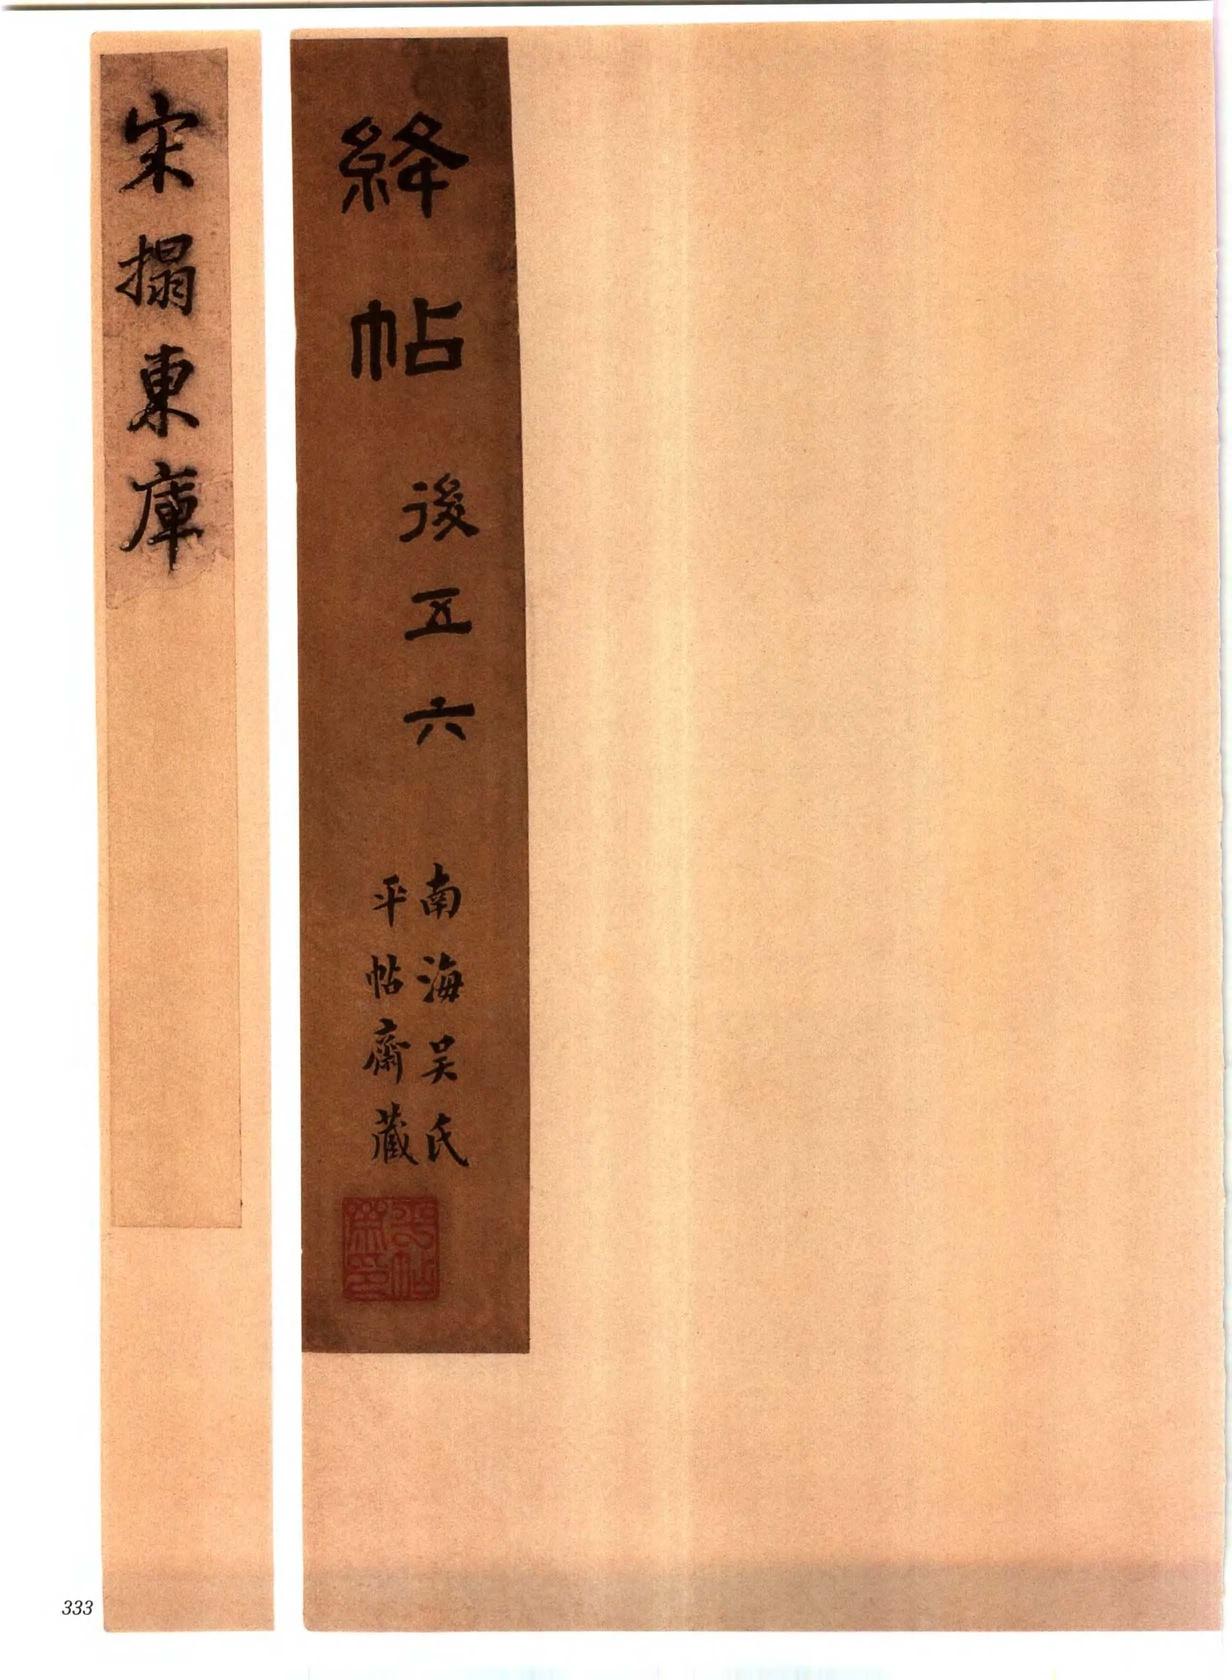 絳帖
後五六
南海吴氏
平帖齋藏
平帖
齋印
宋搨東庫
333